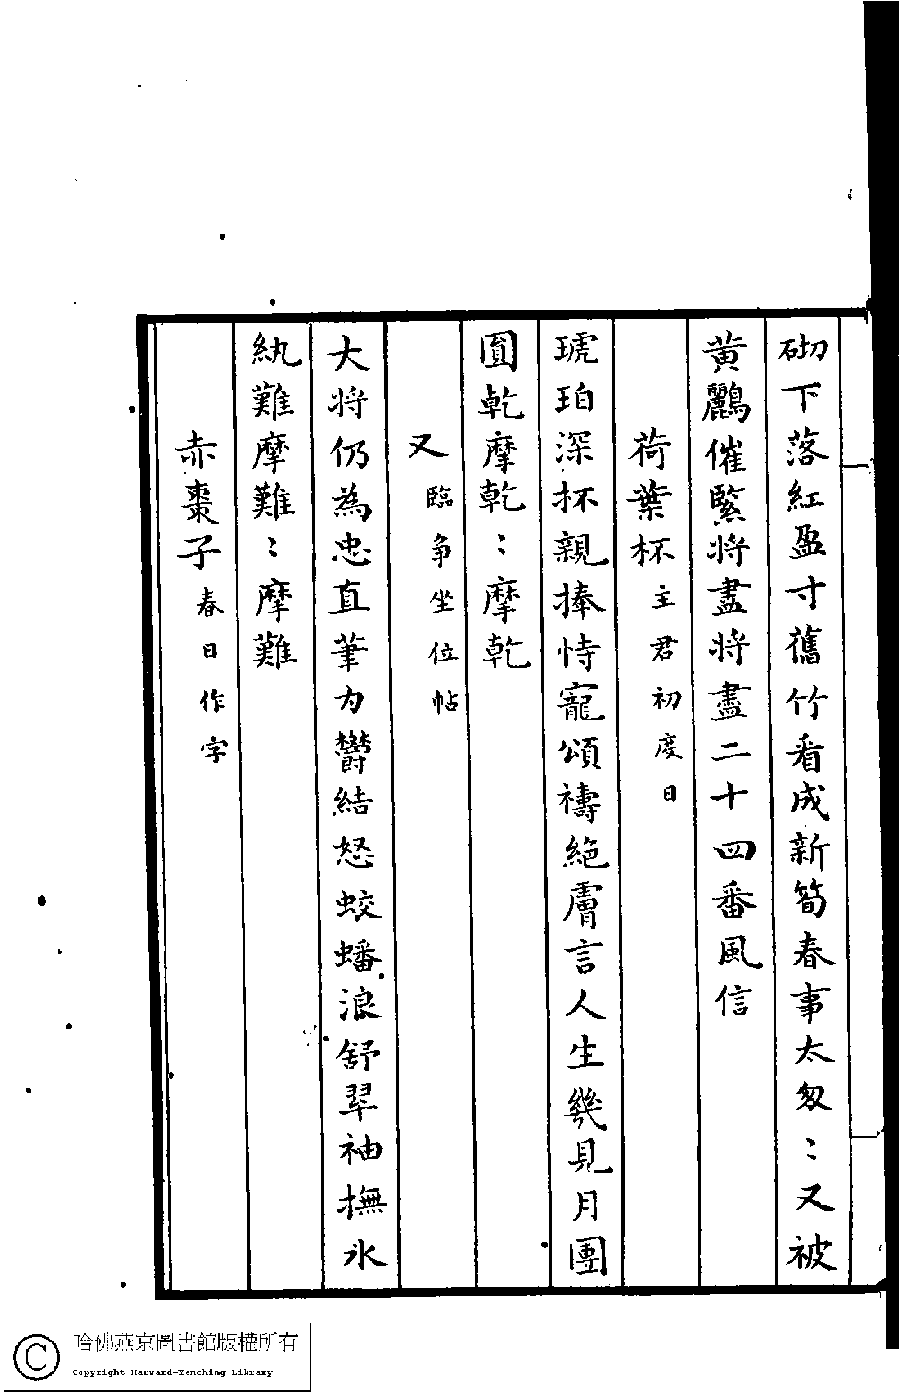 砌下落紅盈寸舊竹看成新筍春事太匆〻又被
黃鸝催緊將盡將盡二十四番風信
荷葉杯主君初度日
琥珀深杯親捧恃寵頌禱絕膚言人生幾見月團
圓乾摩乾〻摩乾
又臨争坐位帖
大将仍為忠直筆力鬱結怒蛟蟠浪舒翠袖撫氷
紈難摩難〻摩難
赤棗子春日作字
哈佛燕京圖書館版權所有
Copyright Harvard-Yenching Library